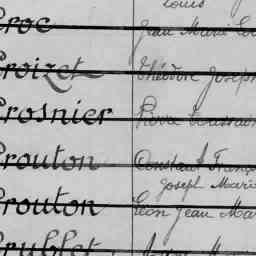 Louis
Croc Jean Marie
Croizet Théodore Joseph
Crosnier Pierre Toussaint
Crouton Constant François
Joseph Marie
Crouton Léon Jean Marie
Crublet